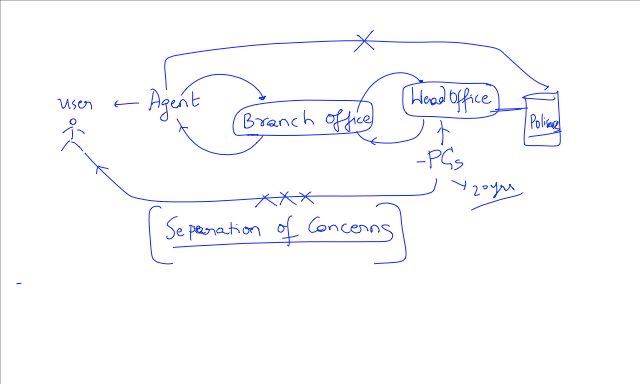 user
Agent
Branch Office
Head Office
Policies
-PGs
20yrs
Separation of Concerns